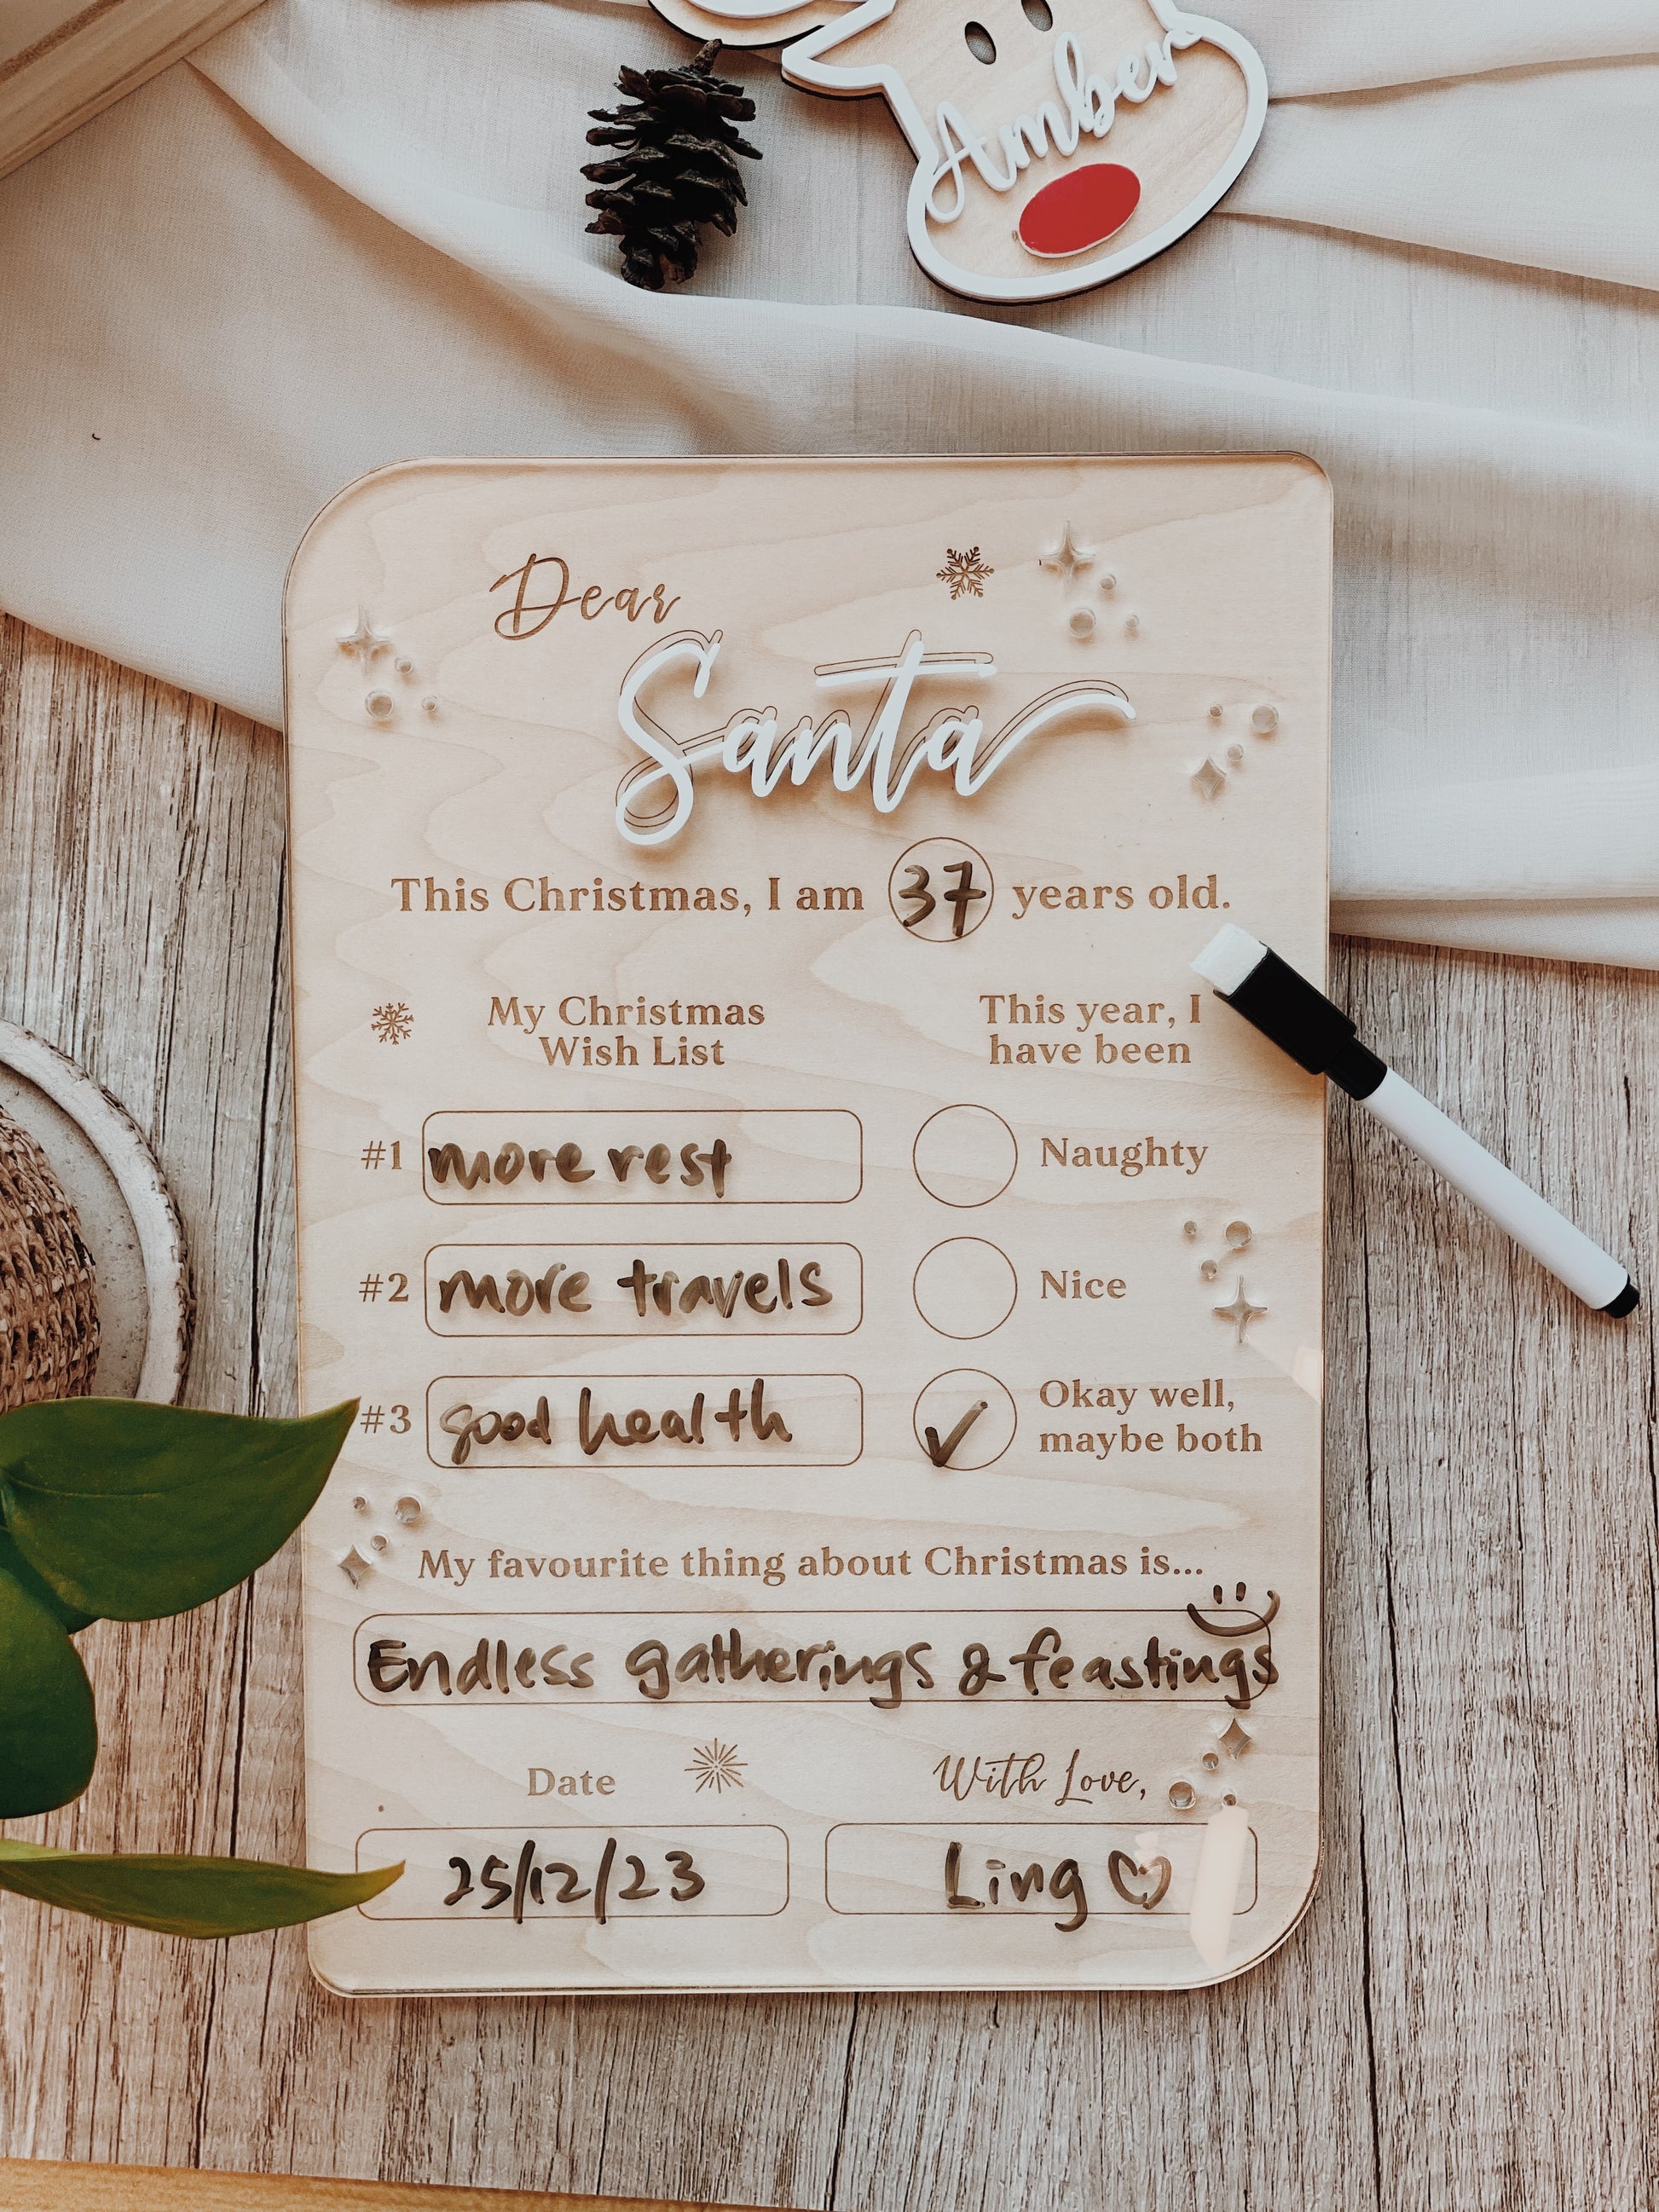 Amber
Dear
Santa
This Christmas, I am 37 years old.
My Christmas
Wish List
This year, I
have been
#1 more rest
Naughty
#2 more travels
Nice
#3 good health
✓ Okay well,
maybe both
My favourite thing about Christmas is...
Endless gatherings & feastings
Date
With Love,
25/12/23
Ling ♡